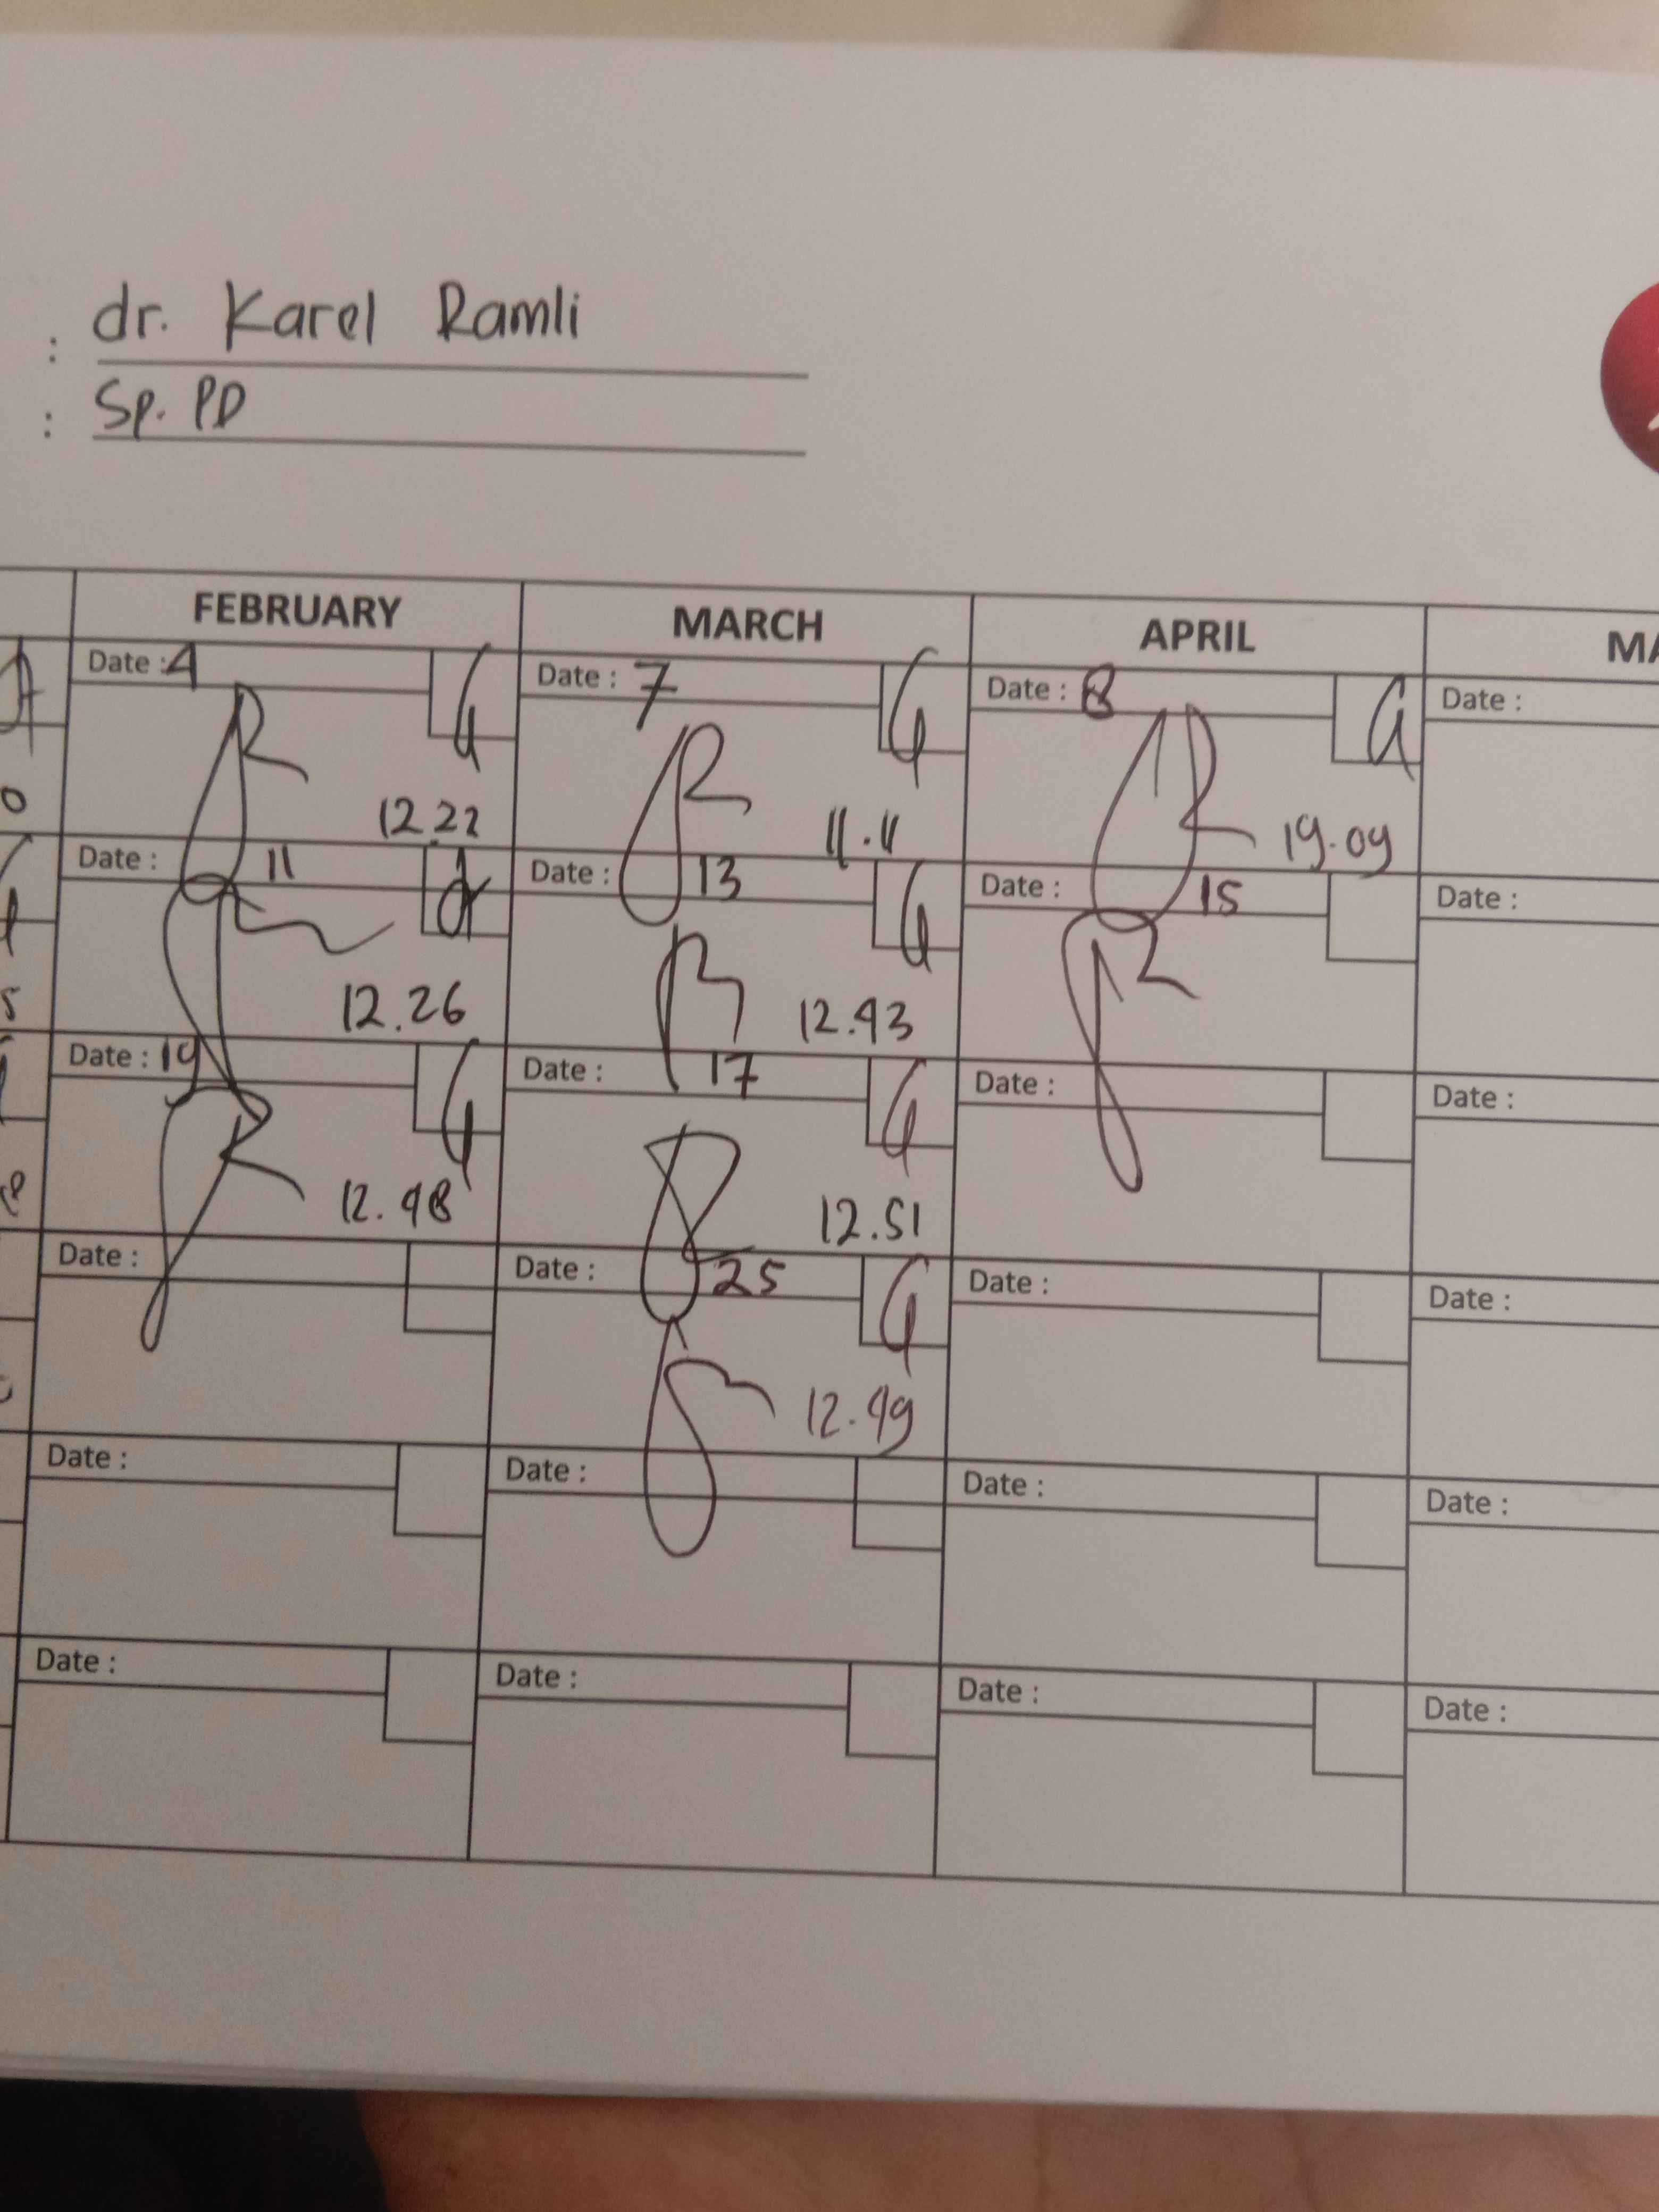 : dr. Karel Ramli
: Sp. PD
FEBRUARY MARCH APRIL
Date : 4 Date : 7 Date : 8 Date :
12.22 11.11 19.09
Date : 11 Date : 13 Date : 15 Date :
12.26 12.43
Date : 19 Date : 17 Date : Date :
12.48 12.51
Date : Date : 25 Date : Date :
12.49
Date : Date : Date : Date :
Date : Date : Date : Date :